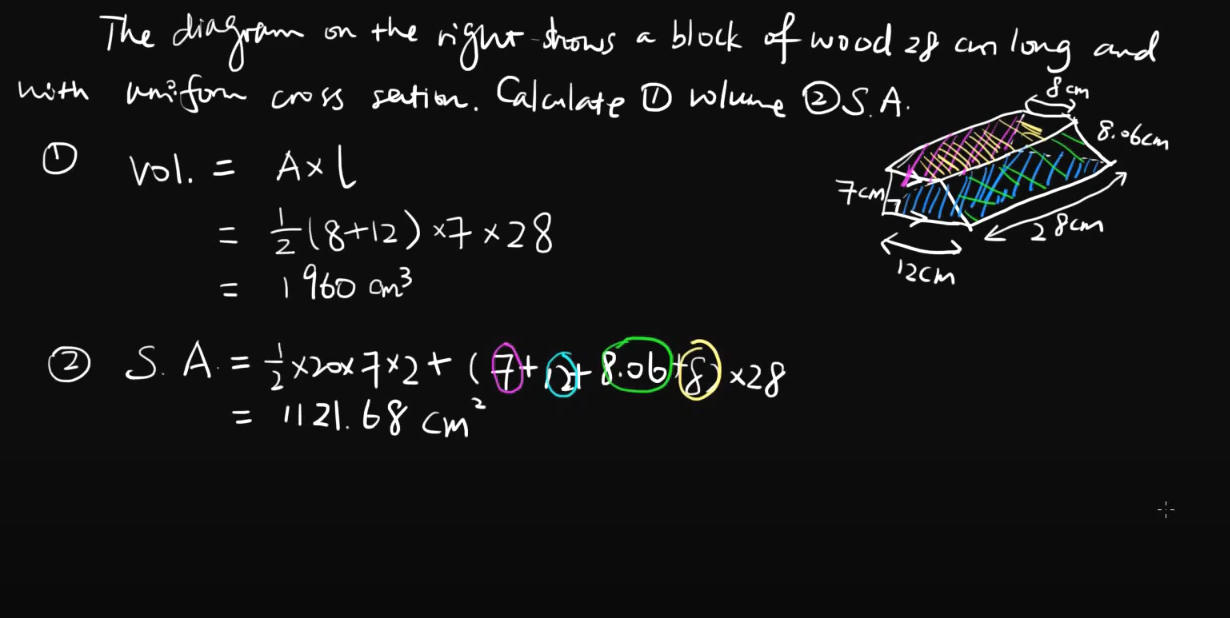 The diagram on the right shows a block of wood 28 cm long and
with uniform cross section. Calculate ① volume ② S.A.
8cm
8.06cm
7cm
28cm
12cm
① Vol. = A×l
= 1/2 (8+12) ×7 ×28
= 1960 cm³
② S.A. = 1/2 ×20×7×2 + (7+12+8.06+8) ×28
= 1121.68 cm²